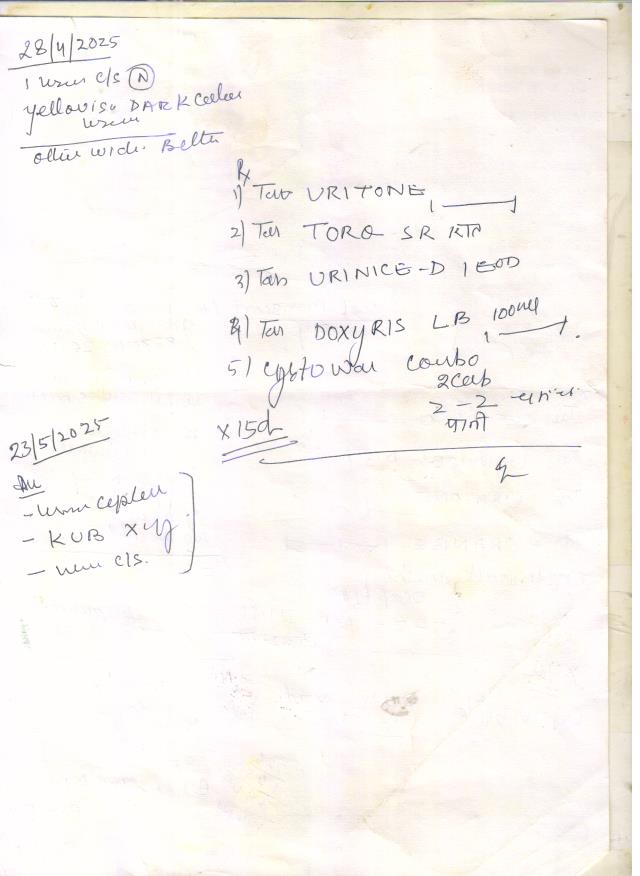 28/4/2025
1 urine c/s (N)
yellowish DARK colour
urine
otherwise. Better
Rx
1) Tab URITONE 1
2) Tab TORQ SR
3) Tab URINICE-D 1 EOD
4) Tab DOXYRIS LB 100mg
1
5) Cysto combo
2 Cap
2 - 2
पानी
x 15d
23/5/2025
- urine
- KUB X-ray
- urine c/s.